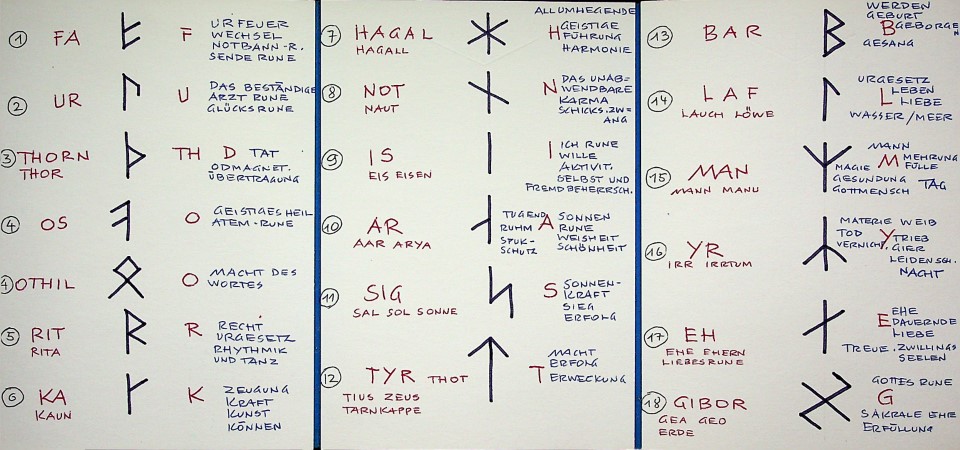 1 FA F UR FEUER
WECHSEL
NOTBANN-R.
SENDE RUNE
2 UR U DAS BESTÄNDIGE
ARZT RUNE
GLÜCKSRUNE
3 THORN TH D TAT
THOR ODMAGNET.
ÜBERTRAGUNG
4 OS O GEISTIGES HEIL
ATEM-RUNE
4 OTHIL O MACHT DES
WORTES
5 RIT R RECHT
RITA URGESETZ
RHYTHMIK
UND TANZ
6 KA K ZEUGUNG
KAUN KRAFT
KUNST
KÖNNEN
7 HAGAL ALLUMHEGENDE
HAGALL H GEISTIGE
FÜHRUNG
HARMONIE
8 NOT N DAS UNAB=
NAUT WENDBARE
KARMA
SCHICKS.ZW=
ANG
9 IS I ICH RUNE
EIS EISEN WILLE
AKTIVIT.
SELBST UND
FREMDBEHERRSCH.
10 AR TUGEND A SONNEN
AAR ARYA RUHM RUNE
SPUK- WEISHEIT
SCHUTZ SCHÖNHEIT
11 SIG S SONNEN-
SAL SOL SONNE KRAFT
SIEG
ERFOLG
12 TYR THOT T MACHT
TIUS ZEUS ERFOLG
TARNKAPPE ERWECKUNG
13 BAR WERDEN
GEBURT
B GEBORGEN
GESANG
14 LAF URGESETZ
LAUCH LÖWE L LEBEN
LIEBE
WASSER/MEER
15 MAN MANN
MANN MANU MAGIE M MEHRUNG
GESUNDUNG FÜLLE
GOTTMENSCH TAG
16 YR MATERIE WEIB
IRR IRRTUM TOD Y TRIEB
VERNICHT. GIER
LEIDENSCH.
NACHT
17 EH E EHE
EHE EHERN DAUERNDE
LIEBESRUNE LIEBE
TREUE.ZWILLINGS
SEELEN
18 GIBOR GOTTES RUNE
GEA GEO G
ERDE SAKRALE EHE
ERFÜLLUNG